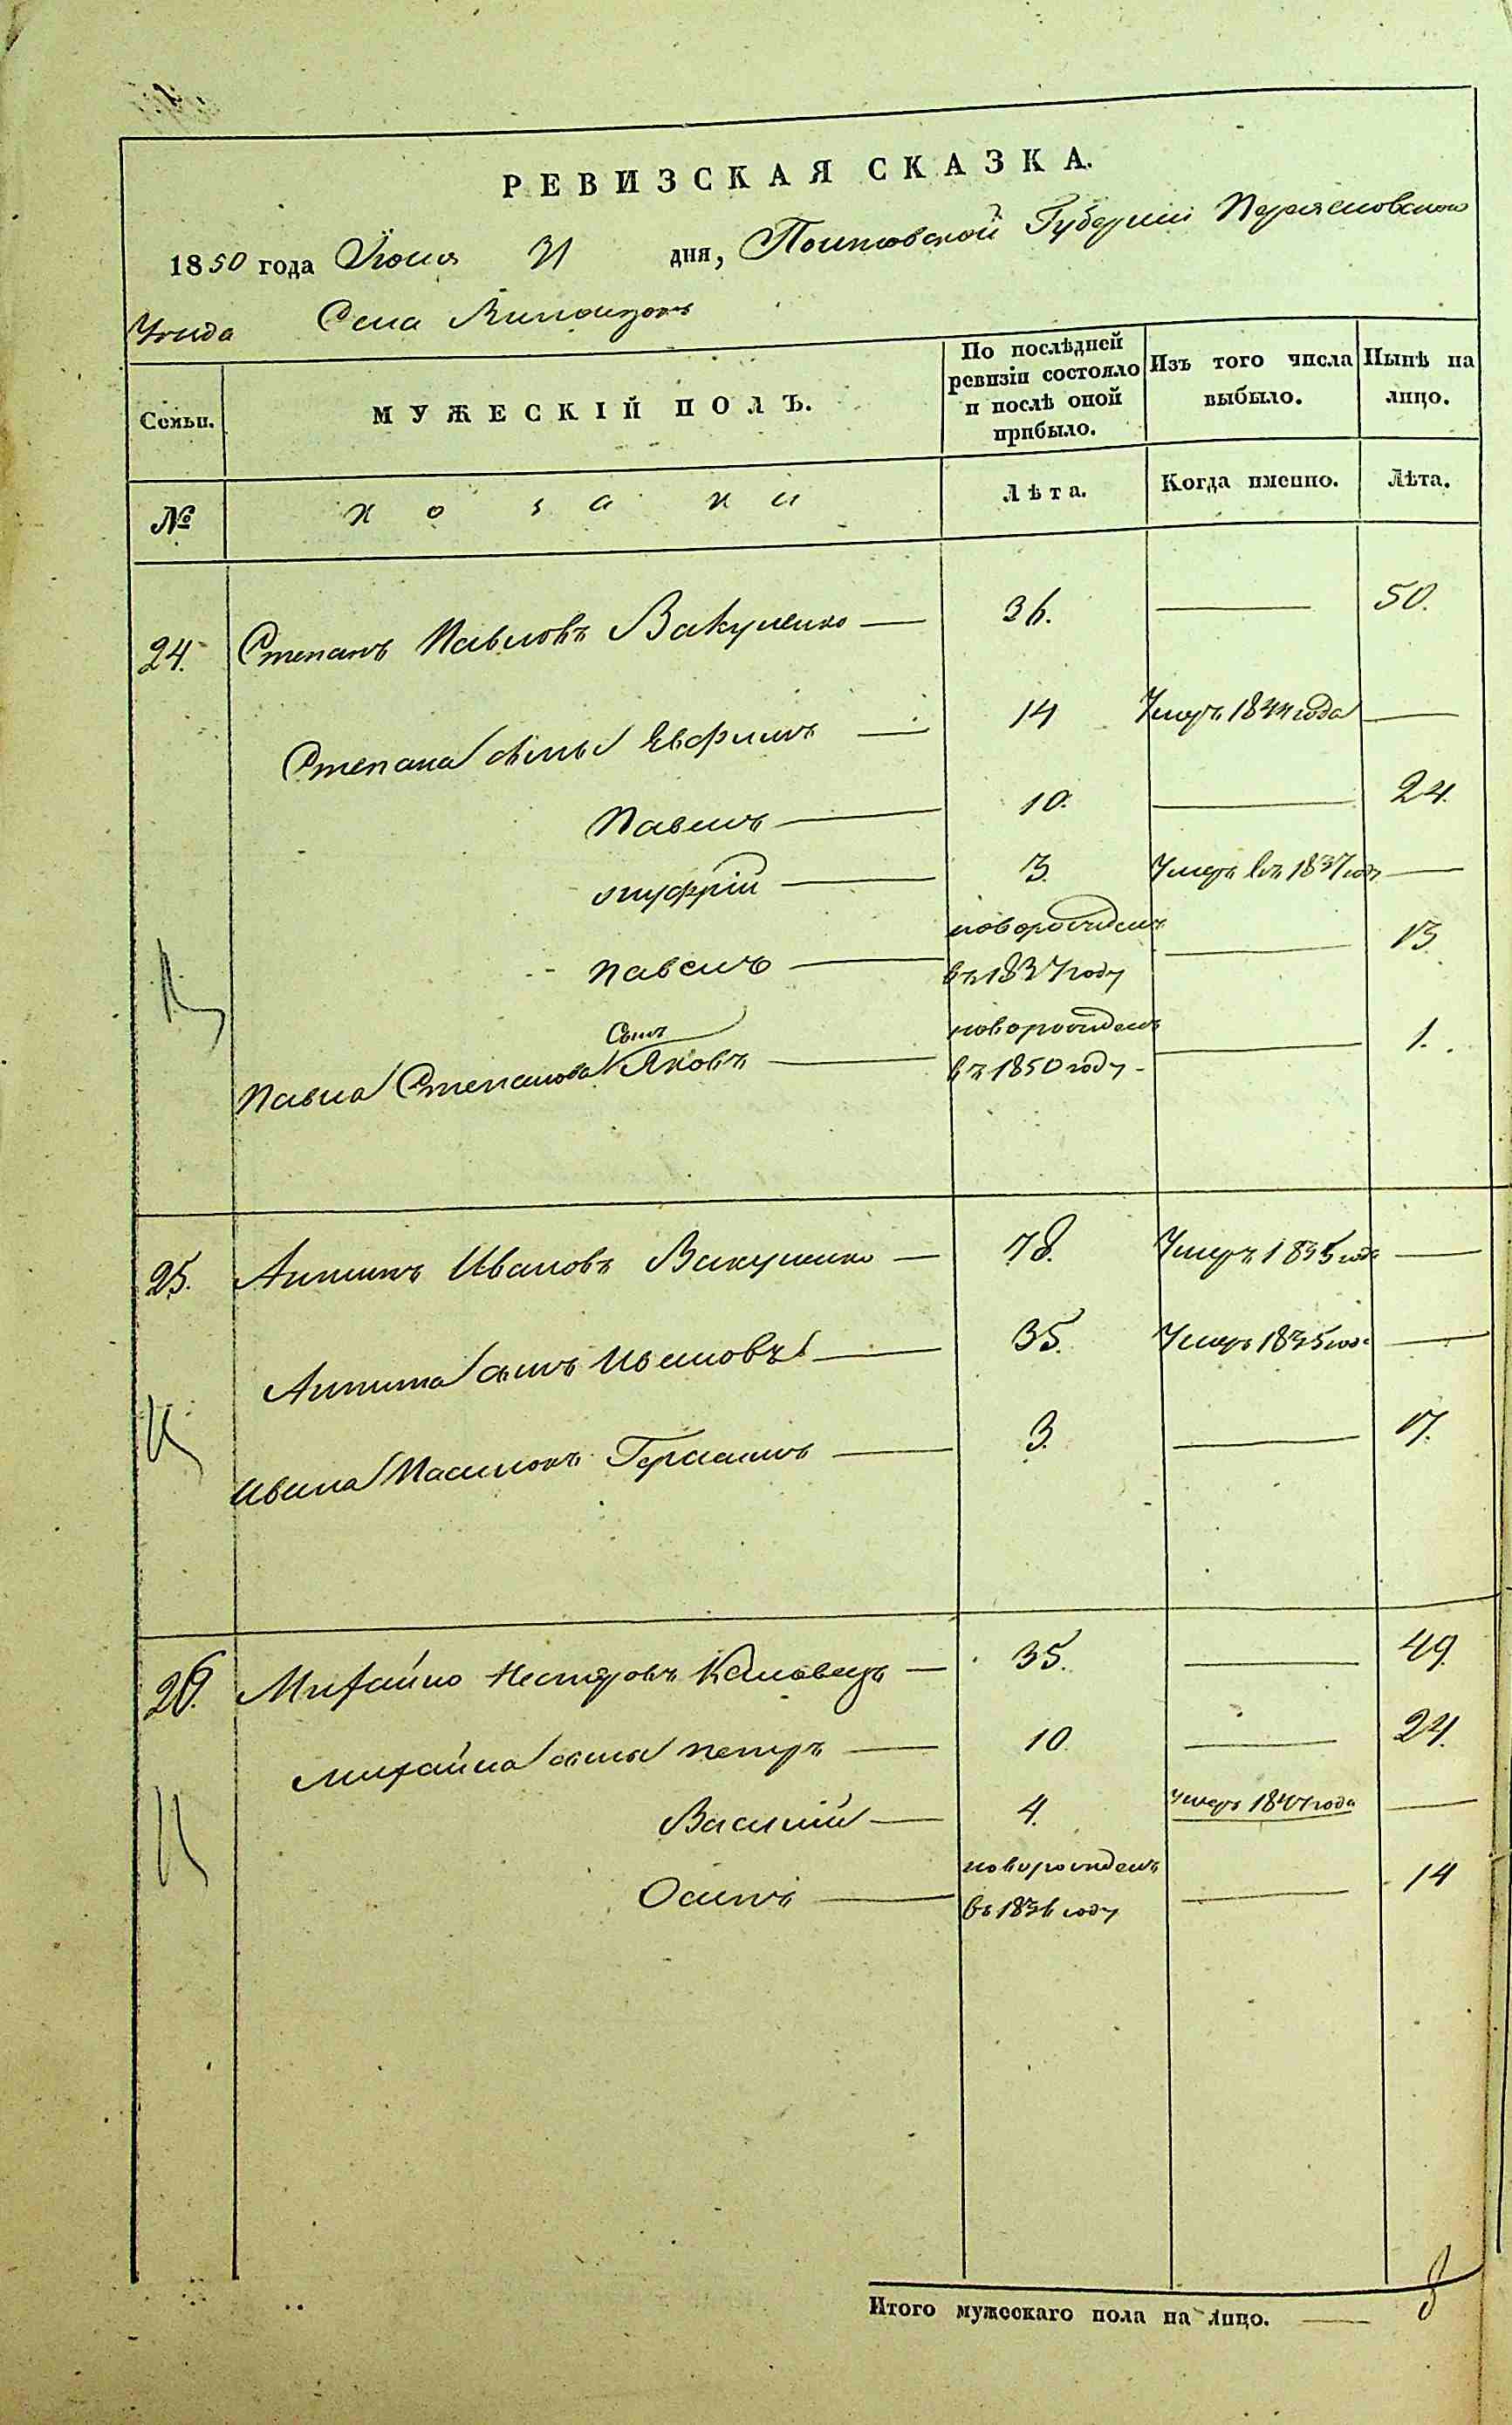 РЕВИЗСКАЯ СКАЗКА.
1850 года Июля 31 дня, Полтавской Губернии Переясловского
Уезда Села
Семьи. МУЖЕСКІЙ ПОЛЪ. По послѣдней ревизіи состояло и послѣ оной прибыло. Изъ того числа выбыло. Нынѣ на лицо.
№ козаки Лѣта. Когда именно. Лѣта.
24. Степанъ Павловъ Вакуленко — 36. — 50.
Степана сыны Ефримъ — 14 Умеръ 1844 года —
Павелъ — 10. — 24.
Онуфрій — 3. Умеръ въ 1837 годъ —
Павелъ — новорожденъ въ 1837 году — 13
Павла Степанова Сынъ Яковъ — новорожденъ въ 1850 году — 1.
25. Антипъ Ивановъ Вакуленко — 78. Умеръ 1835 года —
Антипа сынъ — 35. Умеръ 1835 года —
Ивана Герасимъ — 3. — 17.
26. Михайло Нестеровъ — 35. — 49.
Михайла сыны Петръ — 10. — 24.
Василій — 4. Умеръ 1847 года —
Осипъ — новорожденъ въ 1836 году — 14
Итого мужескаго пола на лицо. — 8